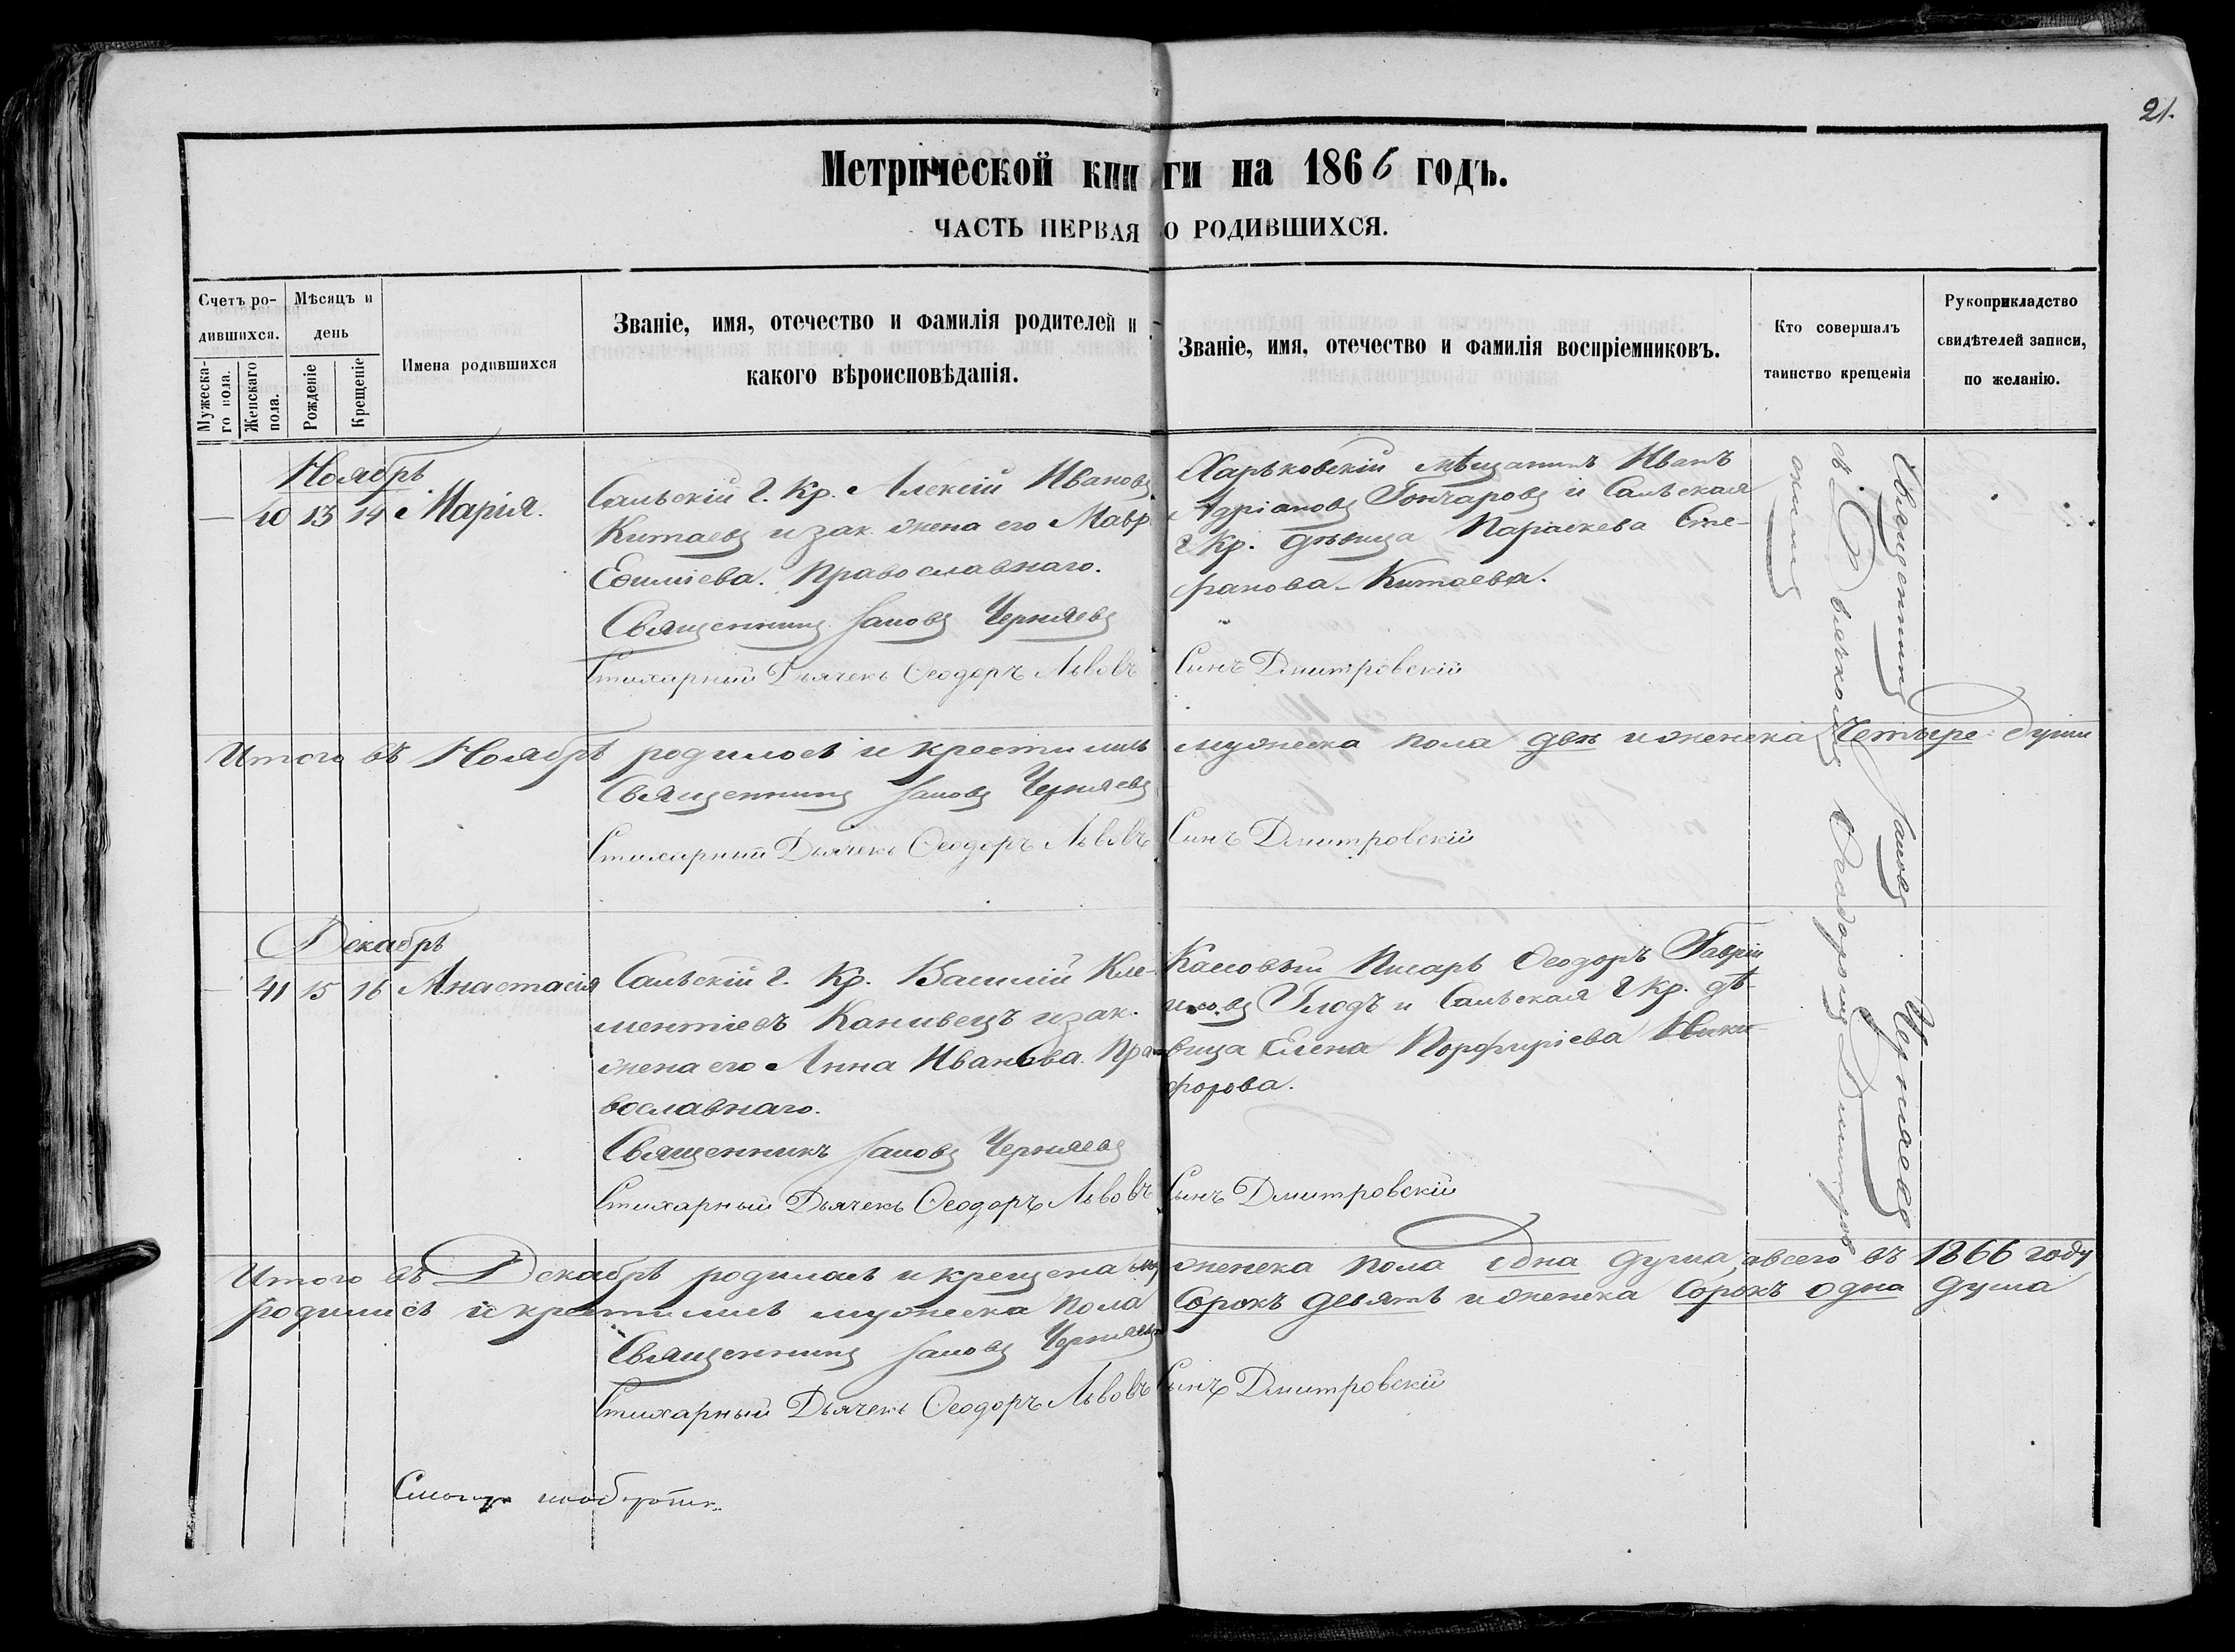 21.
Метрической книги на 1866 годъ.
ЧАСТЬ ПЕРВАЯ О РОДИВШИХСЯ.
Счетъ ро-
дившихся.
Мужеска-
го пола.
Женскаго
пола.
Мѣсяцъ и
день
Рожденіе
Крещеніе
Имена родившихся
Званіе, имя, отечество и фамилія родителей и
какого вѣроисповѣданія.
Званіе, имя, отечество и фамилія воспріемниковъ.
Кто совершалъ
таинство крещенія
Рукоприкладство
свидѣтелей записи,
по желанію.
Ноябрь
— 40 13 14 Марія.
Сальскій Г. Кр. Алексій Ивановъ
Китаевъ и зак. жена его Мавр
Православнаго.
Священникъ Іаковъ Черняевъ
Стихарный Дьячекъ Ѳеодоръ Львовъ Сынъ Дмитровскій
Харьковскій мѣщанинъ Иванъ
Адріановъ Гончаровъ и Сальская
Г Кр. дѣвица Параскева Сте-
фанова Китаева.
Священникъ Іаковъ Черняевъ
съ Дьячкомъ Ѳеодоромъ Дмитров
скимъ
Итого въ Ноябрѣ родилось и крестились мужеска пола двѣ и женска Четыре души
Священникъ Іаковъ Черняевъ
Стихарный Дьячекъ Ѳеодоръ Львовъ Сынъ Дмитровскій
Декабрь
41 15 16 Анастасія
Сальскій Г. Кр. Василій Кле-
ментіевъ Канивецъ и зак.
жена его Анна Иванова. Пра-
вославнаго.
Священникъ Іаковъ Черняевъ
Стихарный Дьячекъ Ѳеодоръ Львовъ Сынъ Дмитровскій
Писарь Ѳеодоръ Гаврі
иловъ Глодъ и Сальская Г Кр. дѣ-
вица Елена Порфиріева Ники-
форова.
Итого въ Декабрѣ родилась и крещена женска пола одна душа, а всего въ 1866 году
родились и крестились мужеска пола Сорокъ девять и женска Сорокъ одна душа
Священникъ Іаковъ Черняевъ
Стихарный Дьячекъ Ѳеодоръ Львовъ Сынъ Дмитровскій